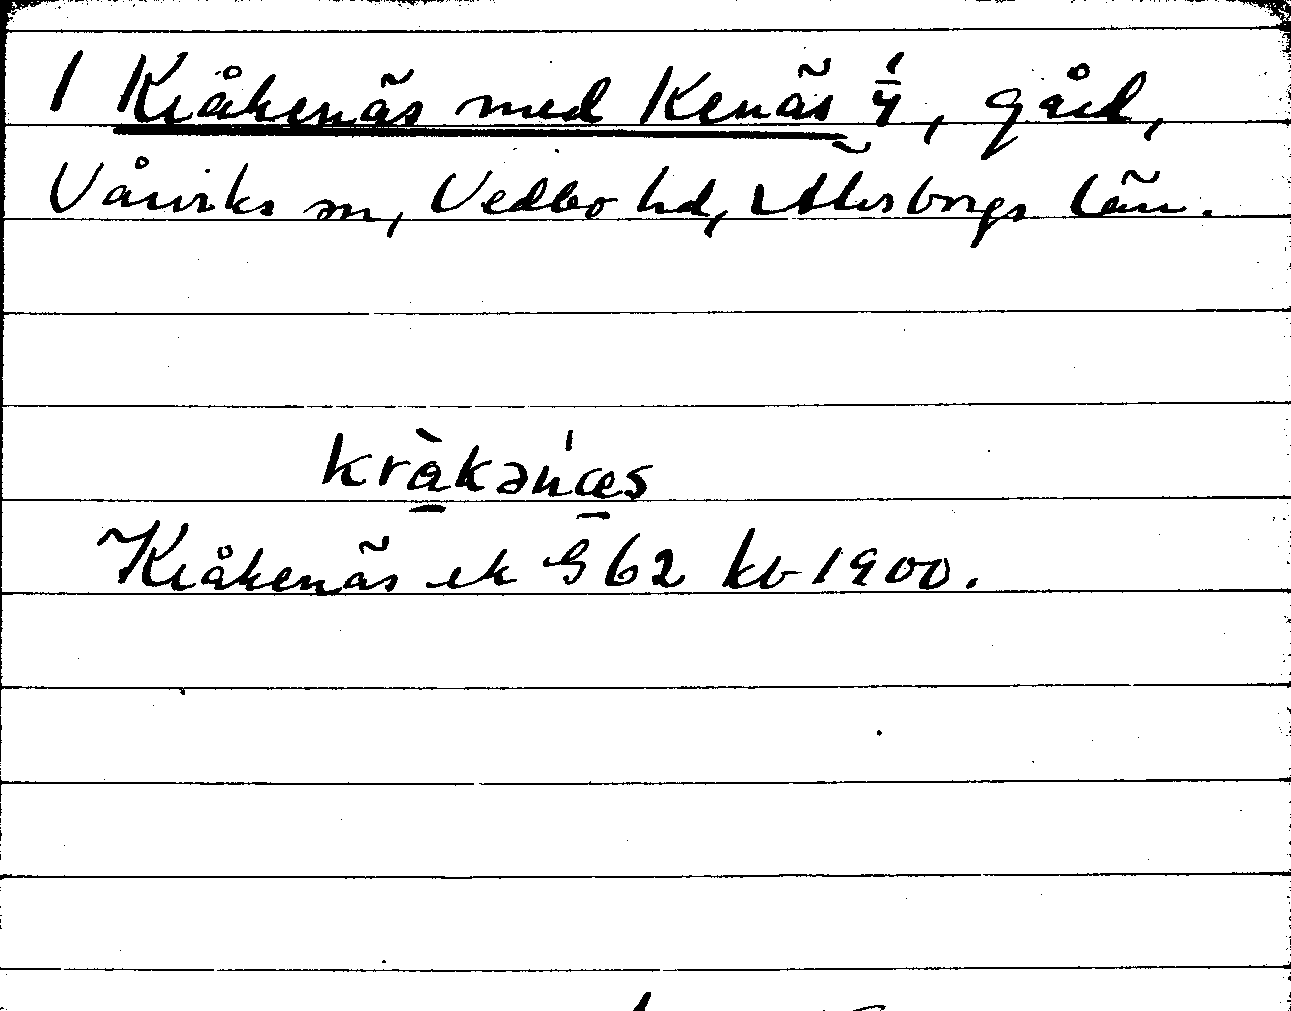 1 Kråkenäs med Kenäs 1/4, gård,
Vårviks sn, Vedbo hd, Älvsborgs län.
kràkən'æs
Kråkenäs ek G 62 kb 1900.